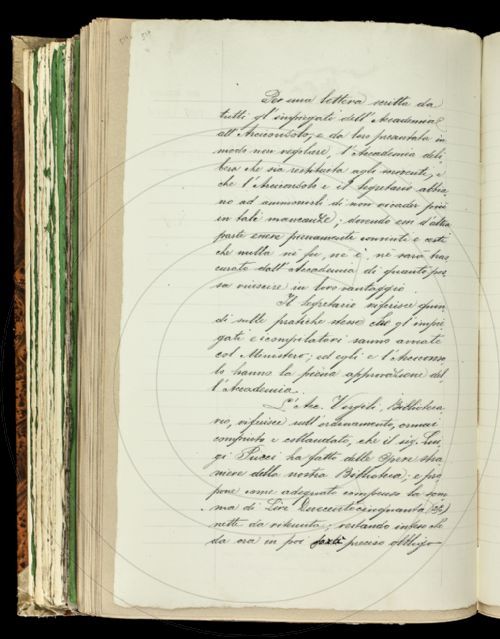 Per una lettera scritta da
tutti gl'impiegati dell'Accademia
all'Arciconsolo, e da loro presentata in
modo non regolare, l'Accademia deli-
bera che sia restituita agli scriventi, e
che l'Arciconsolo e il Segretario abbia-
no ad ammonirli di non ricader più
in tali mancanze; dovendo essi d'altra
parte essere pienamente convinti e certi
che nulla nè fu, nè è, nè sarà tras
curato dall'Accademia di quanto pos
sa riuscire in loro vantaggio.
Il Segretario riferisce quin-
di sulle pratiche stesse che gl'impie
gati e i compilatori sanno avviate
col Ministero; ed egli e l'Arciconso
lo hanno la piena approvazione del-
l'Accademia.
L'Acc. Vergili, Biblioteca-
rio, riferisce sull'ordinamento, ormai
compiuto e collaudato, che il sig. Lui
gi Pucci ha fatto delle Opere stra
niere della nostra Biblioteca; e pro
pone come adeguato compenso la som
ma di Lire Duecentocinquanta (250)
nette da ritenuta; restando inteso che
da ora in poi preciso obbligo